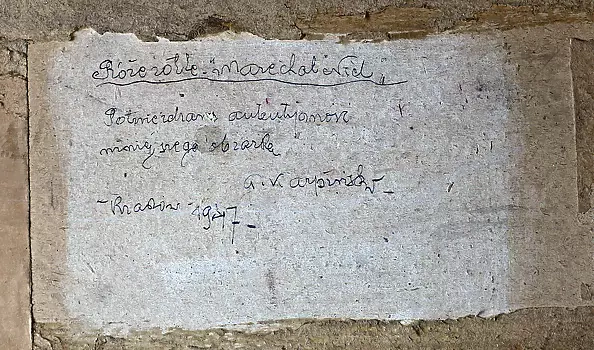 Róże żółte - "Marechal Niel"
Potwierdzam autentyczność
niniejszego obrazka
A. Karpiński -
- Kraków - 1947 -